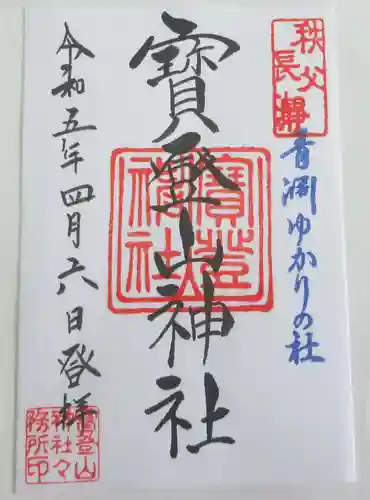 秩父
長瀞
青淵ゆかりの社
寳登山神社
寳登
山神
社
令和五年四月六日登拝
寳登山
神社々
務所印